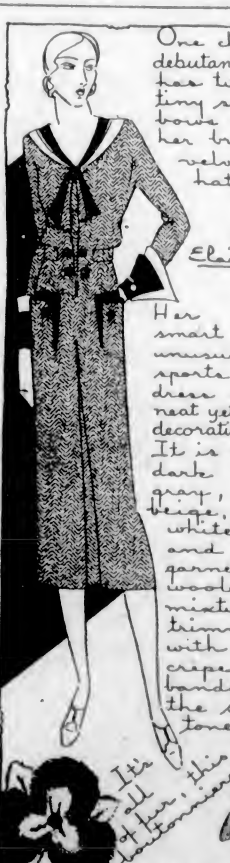 One
debutan
has
tiny
bows
her
velv
hat
Elai
Her
smart
unusu
sports
dress
neat yet
decorati
It is
dark
gray,
beige,
white
and
garne
wool
mixtu
trimm
with
crepe
band
the
tone
It's
all
of fur, this
boutonniere